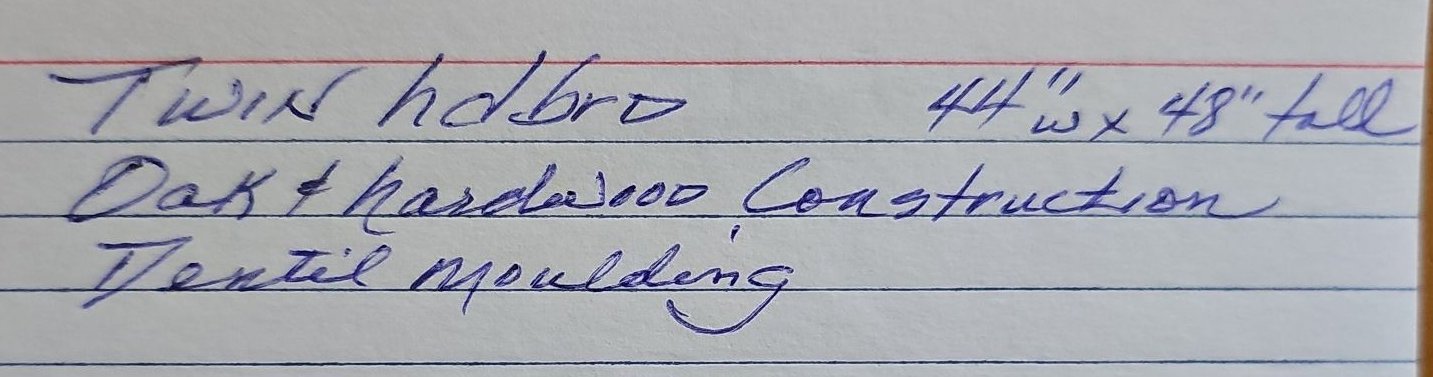 Twin hdbrd 44" w x 48" tall
Oak & hardwood Construction
Dentil moulding